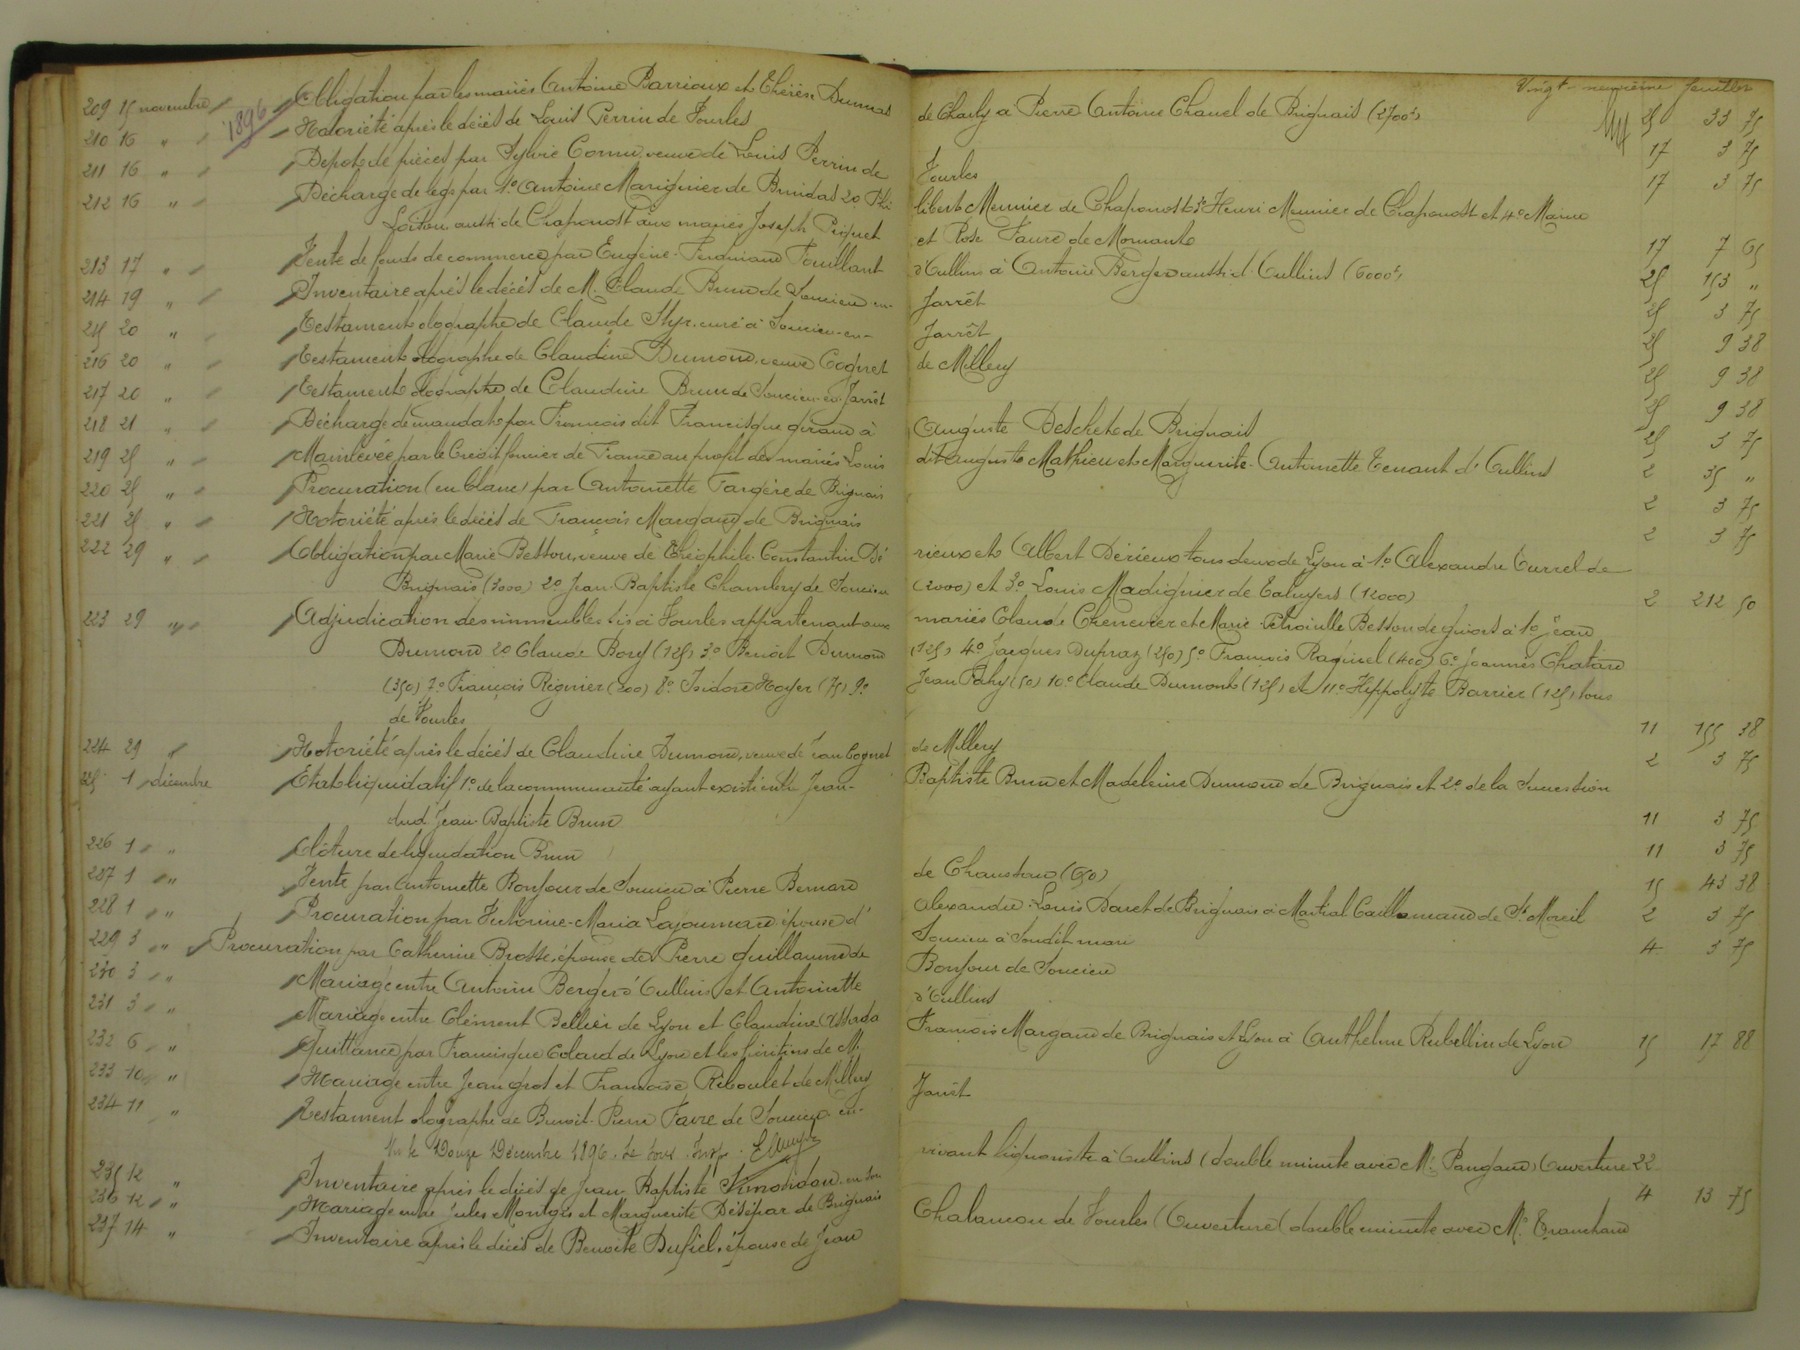 Vingt-neuvième feuillet
1896
209 15 novembre Obligation par les mariés Antoine Barrioux et Thérèse Dumas de Charly à Pierre Antoine Chanel de Brignais (2700f) 25 33 75
210 16 " Notoriété après le décès de Louis Perrin de Vourles 17 3 75
211 16 " Dépot de pièces par Sylvie Cornu veuve de Louis Perrin de Vourles 17 3 75
212 16 " Décharge de legs par 1o Antoine Marignier de Brindas 2o Phi libert Meunier de Chaponost 3o Henri Meunier de Chaponost et 4o Marie
Loiton, aussi de Chaponost aux mariés Joseph Piquet et Rose Faure de Mornant 17 7 65
213 17 " Vente de fonds de commerce par Eugène-Ferdinand Fouillant d'Oullins à Antoine Berger aussi d'Oullins (6000f) 25 153 "
214 19 " Inventaire après le décès de M. Claude Brun de Soucieu-en- Jarrêt 25 3 75
215 20 " Testament olographe de Claude curé à Soucieu-en- Jarrêt 25 9 38
216 20 " Testament olographe de Claudine Dumond, veuve Cognet de Millery 25 9 38
217 20 " Testament olographe, de Claudine Brun de Soucieu-en-Jarrêt 25 9 38
218 21 " Décharge de mandat par François dit Francisque Giraud à Auguste Deschet de Brignais 25 3 75
219 25 " Mainlevée par le Crédit foncier de France au profit des mariés Louis dit Auguste Mathieu et Marguerite-Antoinette Tenant d'Oullins 2 35 "
220 25 " Procuration (en blanc) par Antoinette Fargère de Brignais 2 3 75
221 25 " Notoriété après le décès de François Margand de Brignais 2 3 75
222 29 " Obligation par Marie Besson, veuve de Théophile-Constantin Dé rieux et Albert Dérieux tous deux de Lyon à 1o Alexandre Turrel de
Brignais (3000) 2o Jean-Baptiste Chambry de Soucieu (2000) et 3o Louis Madignier de Taluyers (12000) 2 212 50
223 29 " Adjudication des immeubles sis à Vourles appartenant aux mariés Claude Chenevier et Marie Besson de Givors à 1o Jean
Dumond 2o Claude Bory (125) 3o Benoit Dumond (125) 4o Jacques Dupraz (250) 5o François Raginel (400) 6o Joannès Chatard
(350) 7o François Régnier (200) 8o Isidore Noyer (75) 9o Jean Fahy (50) 10o Claude Dumont (125) et 11o Hippolyte Barrier (125) tous
de Vourles 11 155 38
224 29 " Notoriété après le décès de Claudine Dumond, veuve de Jean Cognet de Millery 2 3 75
225 1 décembre Etat liquidatif 1o de la communauté ayant existé entre Jean- Baptiste Brun et Madeleine Dumond de Brignais et 2o de la Succession
dud. Jean-Baptiste Brun 11 3 75
226 1 " Clôture de liquidation Brun 11 3 75
227 1 " Vente par Antoinette Bonjour de Soucieu à Pierre Bernard de Chaussan (650) 15 43 38
228 1 " Procuration par Victorine-Maria Lajoumard épouse d' Alexandre-Louis Daret de Brignais à Martial Caillamaud de St Moreil 2 3 75
229 3 " Procuration par Catherine Brosse, épouse de Pierre Guillaume de Soucieu à Sondit mari 4 3 75
230 3 " Mariage entre Antoine Berger d'Oullins et Antoinette Bonjour de Soucieu
231 3 " Mariage entre Clément Bellier de Lyon et Claudine Assada d'Oullins
232 6 " Quittance par Francisque Colard de Lyon et les héritiers de M. François Margand de Brignais et Lyon à Anthelme Rubellin de Lyon 15 17 88
233 10 " Mariage entre Jean Grot et Françoise Réboulet de Millery
234 11 " Testament olographe de Benoit-Pierre Favre de Soucieu-en- Jarrêt
Vu le Douze Décembre 1896.
235 12 " Inventaire après le décès de Jean-Baptiste en son vivant liquoriste à Oullins (double minute avec Me Pangaud) Ouverture 22
236 12 " Mariage entre Jules Montgis et Marguerite Désépar de Brignais 4 13 75
237 14 " Inventaire après le décès de Benoite Dufiel, épouse de Jean Chalamon de Vourles (Ouverture) double minute avec Me Tranchand